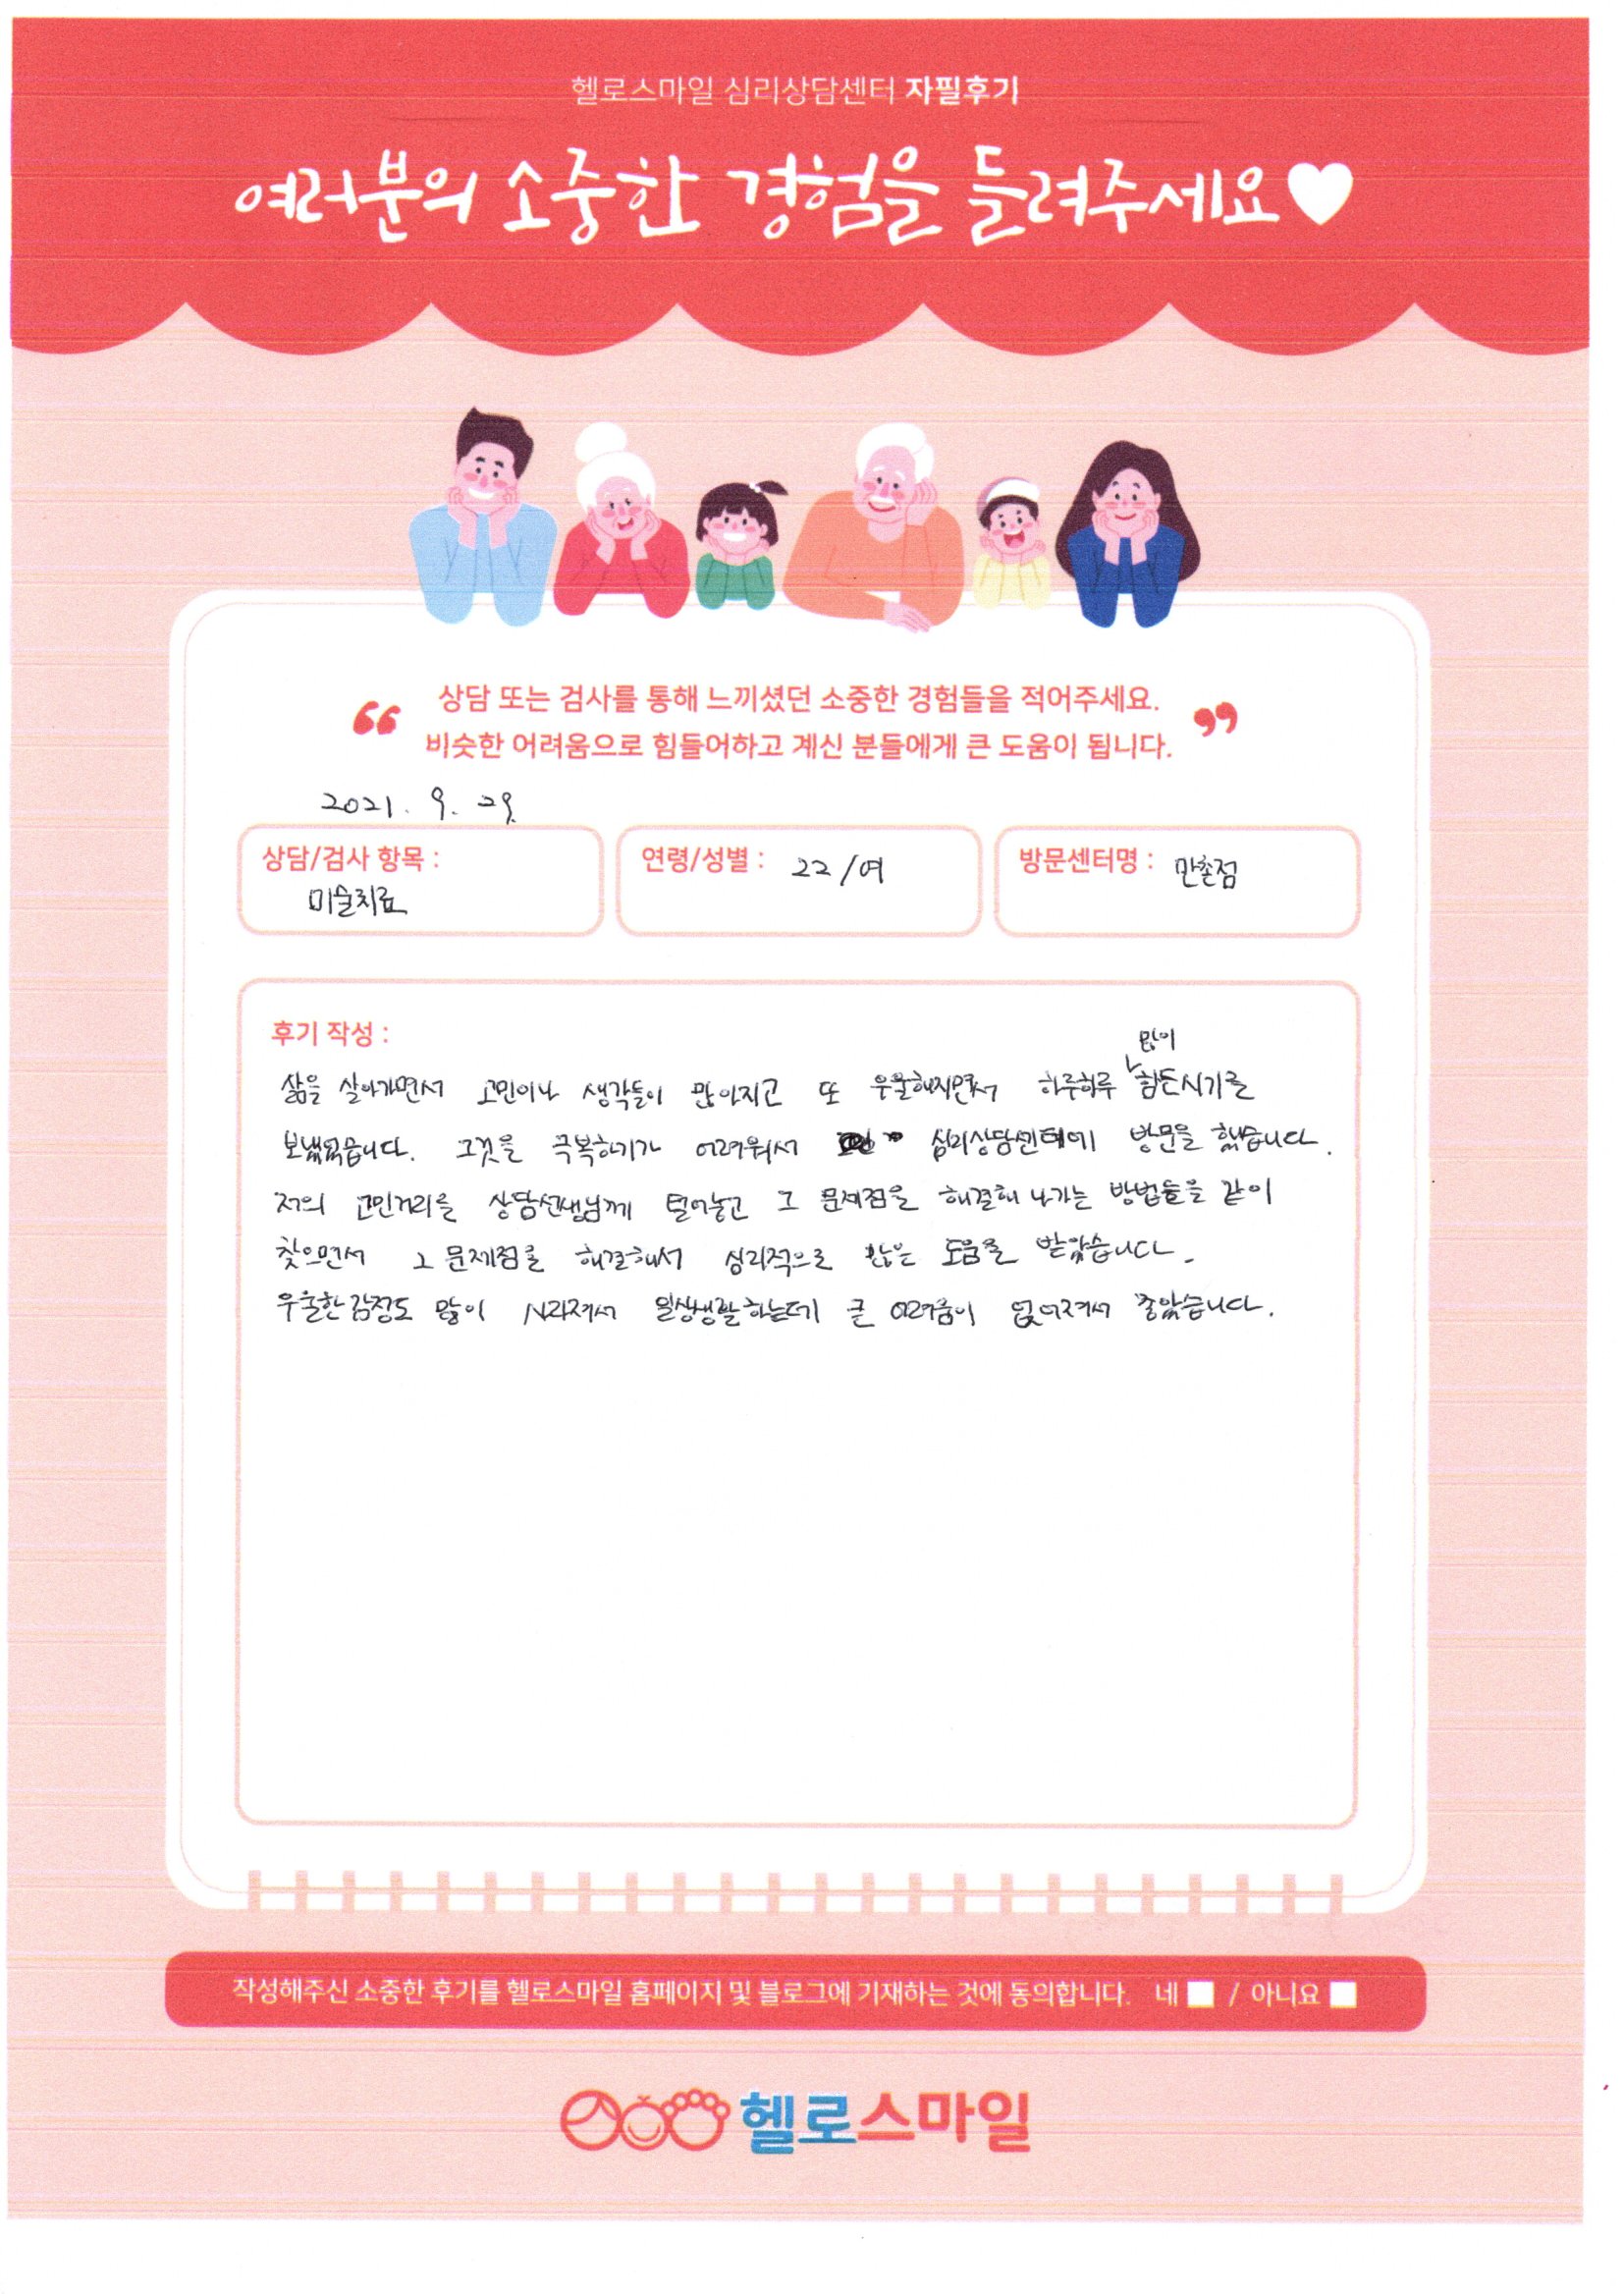 헬로스마일 심리상담센터 자필후기
여러분의 소중한 경험을 들려주세요
상담 또는 검사를 통해 느끼셨던 소중한 경험들을 적어주세요.
비슷한 어려움으로 힘들어하고 계신 분들에게 큰 도움이 됩니다.
2021. 9. 29.
상담/검사 항목 :
미술치료
연령/성별 : 22 / 여
방문센터명 : 만촌점
후기 작성 :
많이
삶을 살아가면서 고민이나 생각들이 많아지고 또 우울해지면서 하루하루 힘든시기를
보냈었습니다. 그것을 극복하기가 어려워서 심리상담센터에 방문을 했습니다.
저의 고민거리를 상담선생님께 털어놓고 그 문제점을 해결해 나가는 방법들을 같이
찾으면서 그 문제점을 해결해서 심리적으로 많은 도움을 받았습니다.
우울한 감정도 많이 사라져서 일상생활하는데 큰 어려움이 없어져서 좋았습니다.
작성해주신 소중한 후기를 헬로스마일 홈페이지 및 블로그에 기재하는 것에 동의합니다. 네 / 아니요
헬로스마일